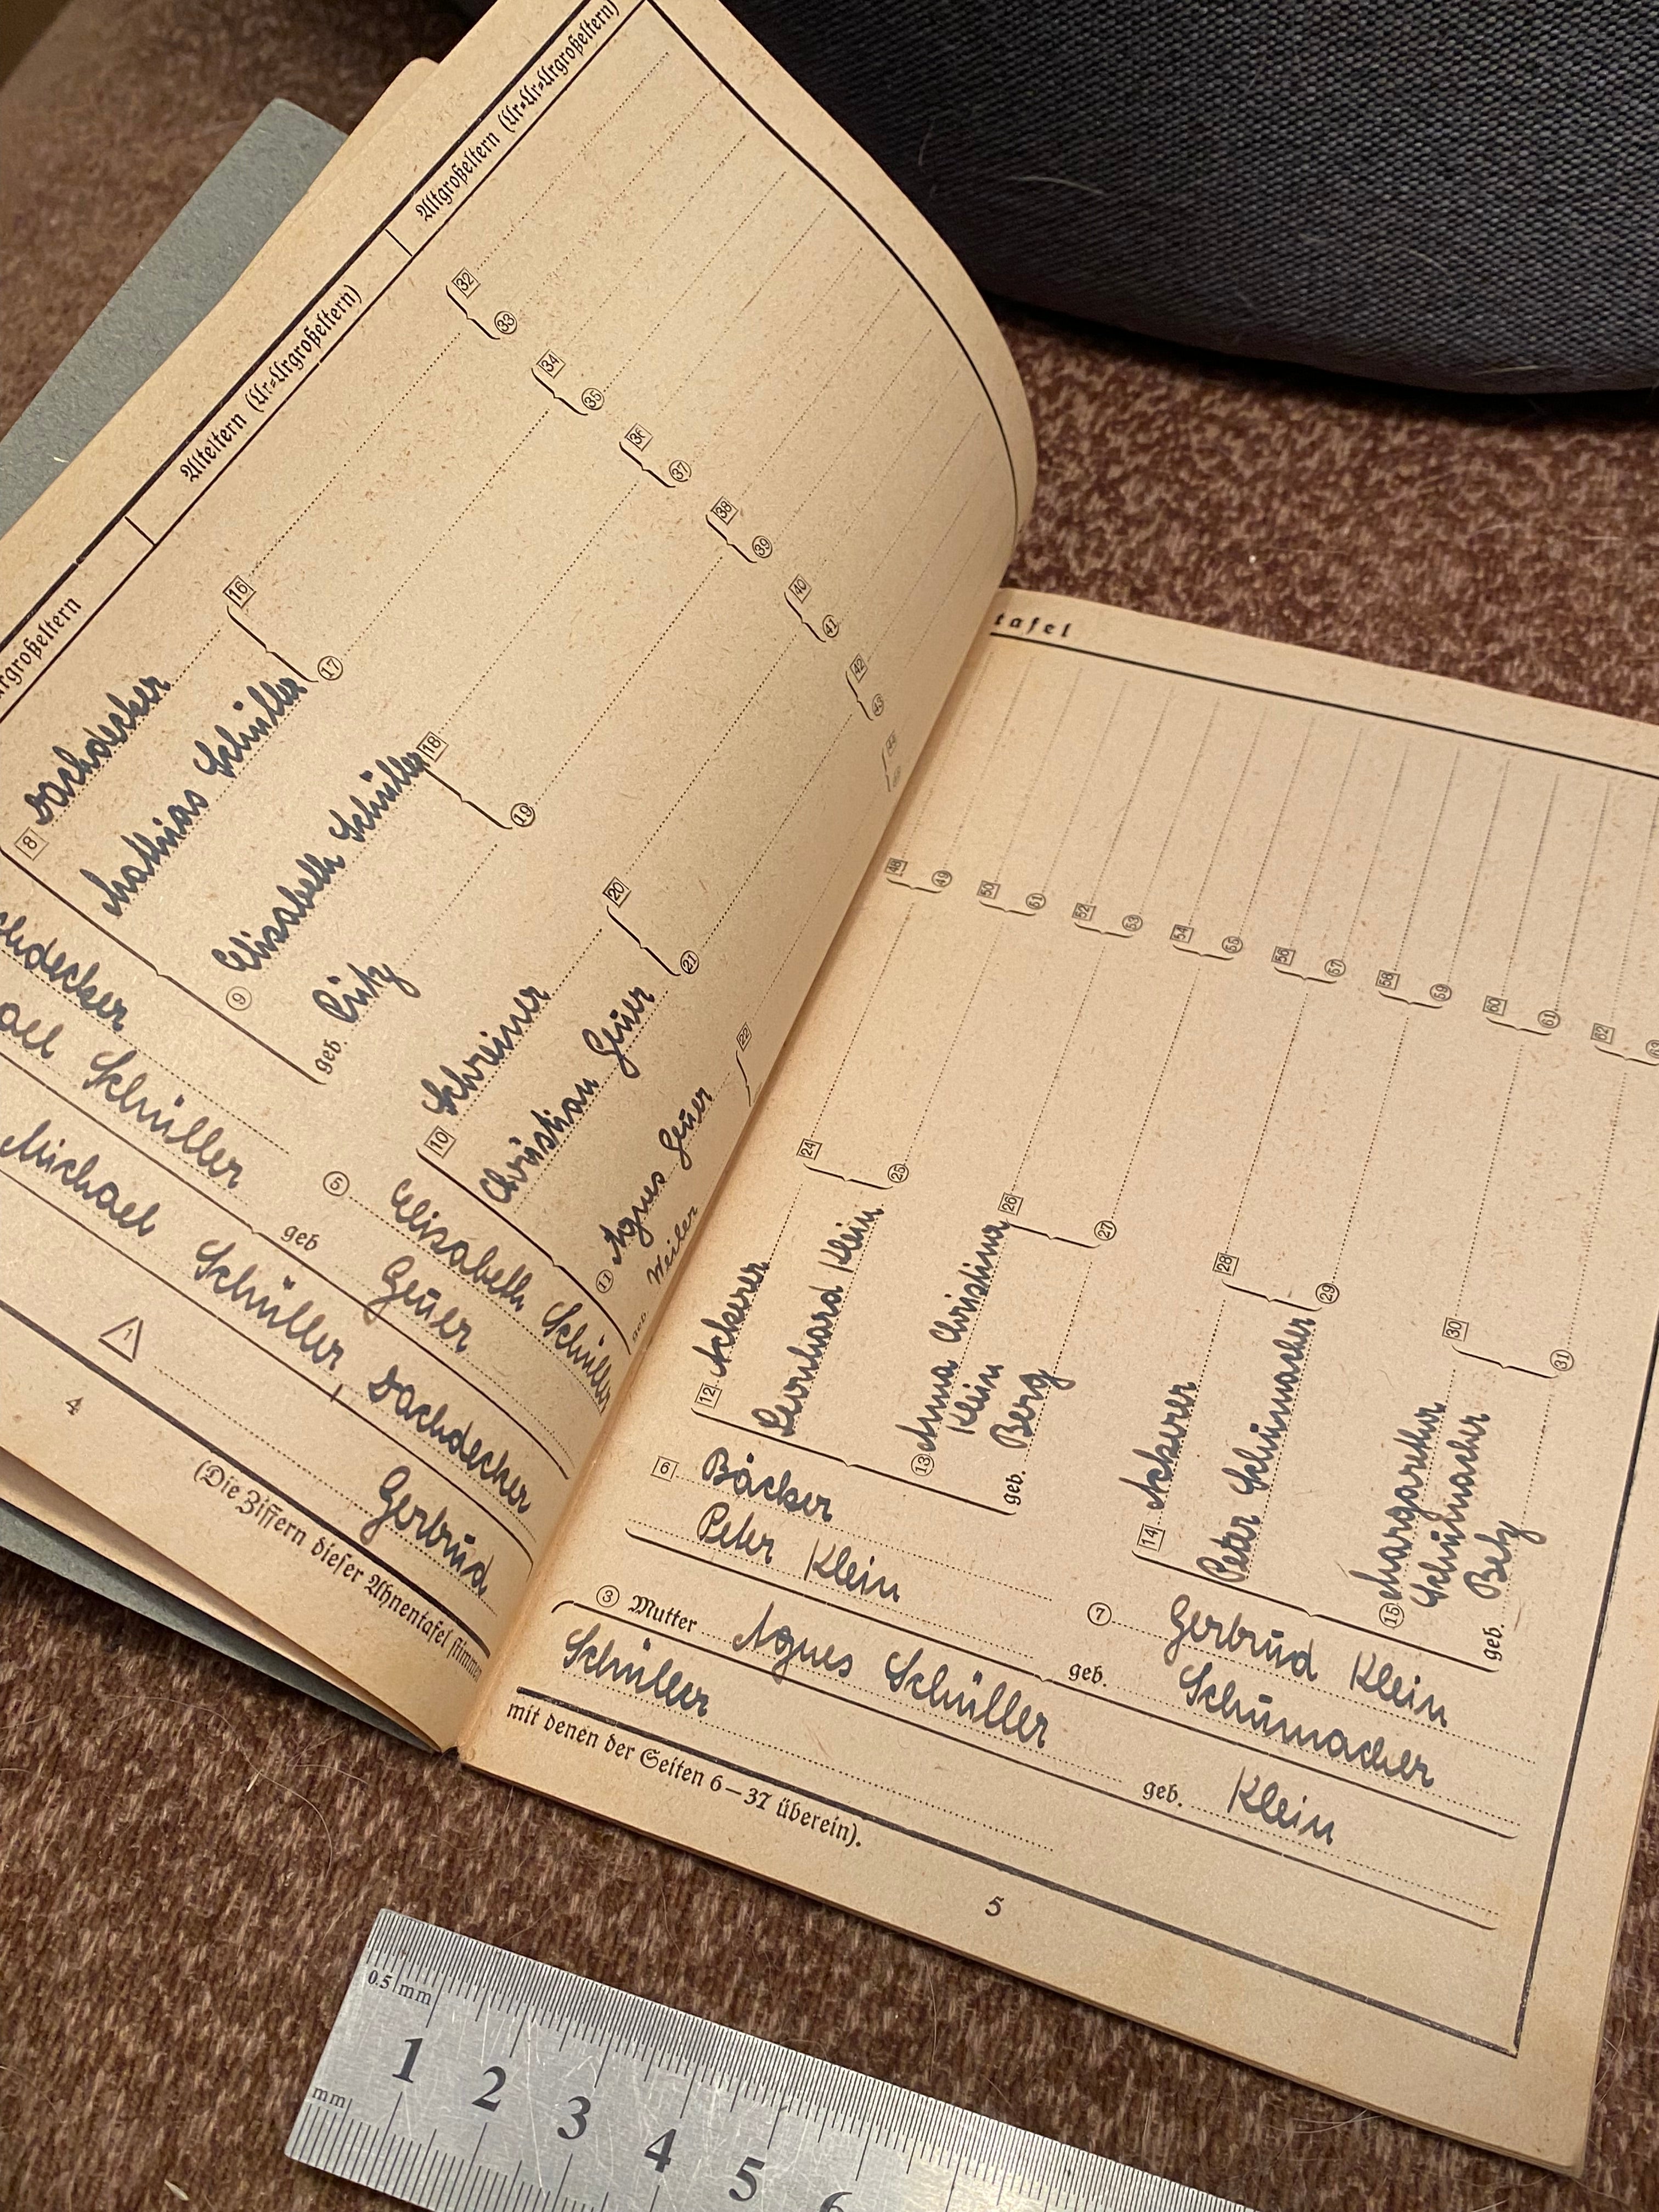 Altgroßeltern (Ur-Ur-Urgroßeltern)
Alteltern (Ur-Urgroßeltern)
32
33
34
35
36
37
38
39
40
41
42
43
44
16
17
18
19
20
21
22
8 Dachdecker
Mathias Schüller
9 Elisabeth Schüller
geb. Pütz
10 Schreiner
Christian Geuer
11 Agnes Geuer
geb. Weiler
Schüller
5 Elisabeth Schüller
geb Geuer
Michael Schüller, Dachdecker
1 Gertrud
4
(Die Ziffern dieser Ahnentafel stimmen
tafel
48
49
50
51
52
53
54
55
56
57
58
59
60
61
62
63
24
25
26
27
28
29
30
31
12 Ackerer
Bernhard Klein
13 Anna Christina
Klein
geb. Berg
14 Ackerer
Peter Schumacher
15 Margaretha
Schumacher
geb. Betz
6 Bäcker
Peter Klein
7 Gertrud Klein
geb. Schumacher
3 Mutter Agnes Schüller
geb. Klein
Schüller
mit denen der Seiten 6—37 überein).
5
0.5 mm
1 2 3 4 5 6
mm